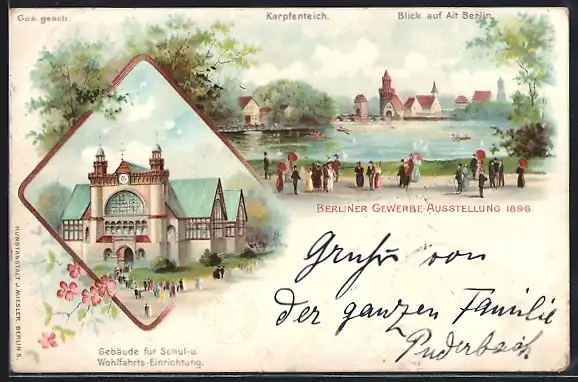 Ges. gesch.
Karpfenteich.
Blick auf Alt Berlin.
BERLINER GEWERBE-AUSSTELLUNG 1896
Gruss von
der ganzen Familie
Puderbach
KUNSTANSTALT J. MIESLER, BERLIN S.
Gebäude für Schul- u.
Wohlfahrts-Einrichtung.